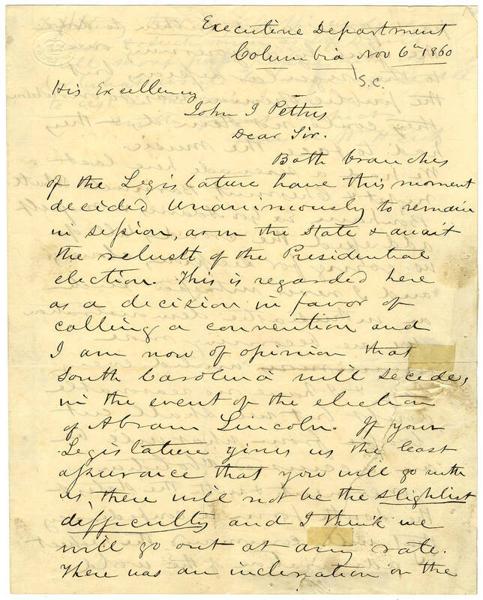 Executive Department
Columbia Nov 6th 1860
S.C.
His Excellency
John J Pettus
Dear Sir.
Both branches
of the Legislature have this moment
decided unanimously to remain
in session, arm the State & await
the relustt of the Presidential
election. This is regarded here
as a decision in favor of
calling a convention and
I am now of opinion that
South Carolina will secede,
in the event of the election
of Abram Lincoln. If your
Legislature gives us the least
assurance that you will go with
us, there will not be the slightest
difficulty and I think we
will go out at any rate.
There was an inclination on the